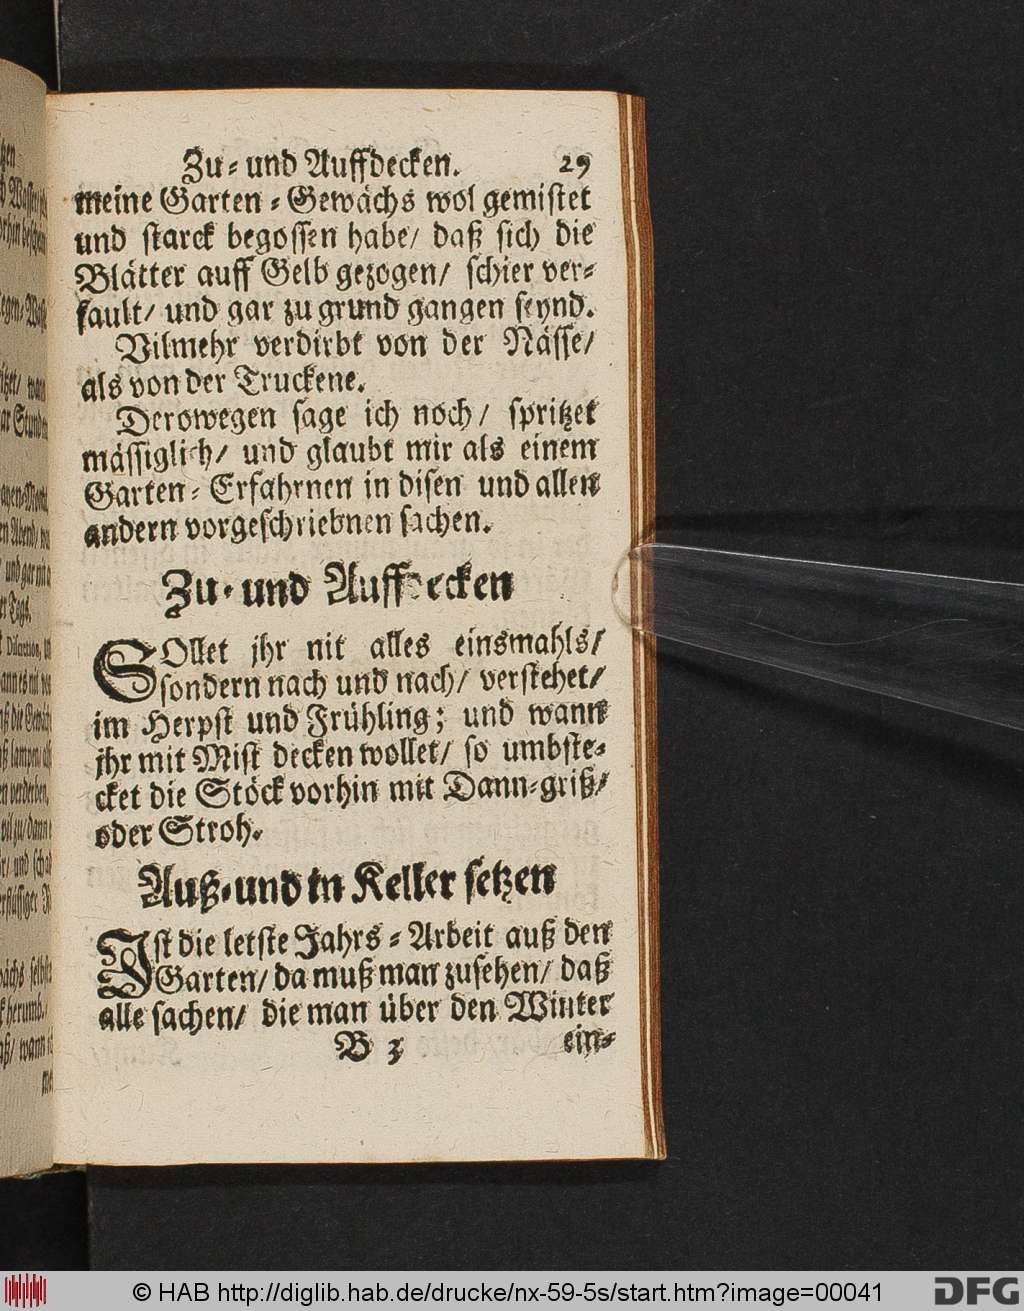 Zu- und Auffdecken. 29
meine Garten-Gewächs wol gemistet
und starck begossen habe/ daß sich die
Blätter auff Gelb gezogen/ schier ver-
fault/ und gar zu grund gangen seynd.
Vilmehr verdirbt von der Nässe/
als von der Truckene.
Derowegen sage ich noch/ spritzet
mässiglich/ und glaubt mir als einem
Garten-Erfahrnen in disen und allen
andern vorgeschriebnen sachen.
Zu- und Auffdecken
SOllet jhr nit alles einsmahls/
sondern nach und nach/ verstehet/
im Herpst und Frühling; und wann
jhr mit Mist decken wollet/ so umbste-
cket die Stöck vorhin mit Dann-griß/
oder Stroh.
Auß- und in Keller setzen
Ist die letste Jahrs-Arbeit auß den
Garten/ da muß man zusehen/ daß
alle sachen/ die man über den Winter
B 3 ein-
© HAB http://diglib.hab.de/drucke/nx-59-5s/start.htm?image=00041
DFG